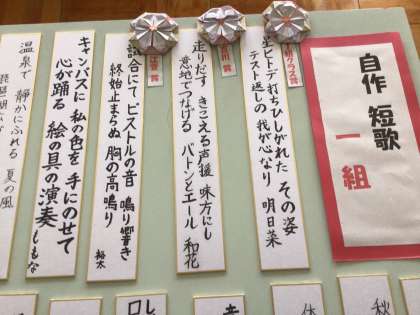 自作 短歌
一組
生ヒトデ 打ちひしがれた その姿
テスト返しの 我が心なり 明日菜
走りだす きこえる声援 味方にし
意地でつなげる バトンとエール 和花
試合にて ピストルの音 鳴り響き
終始止まらぬ 胸の高鳴り 裕太
キャンバスに 私の色を 手にのせて
心が踊る 絵の具の演奏 ももな
温泉で 静かにふれる 夏の風
秋